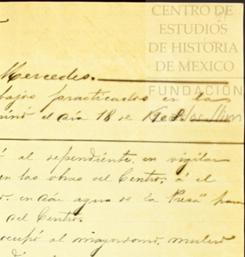 CENTRO DE
ESTUDIOS
DE HISTORIA
DE MEXICO
FUNDACIÓN
Carlos Slim
Mercedes.
bajos practicados en la
minó el día 18 de
ó al dependiente, en vigilar
en las obras del Centro; á el
o, en dar agua de la Presa para
del Centro.
ocupó al mayordomo, mulero